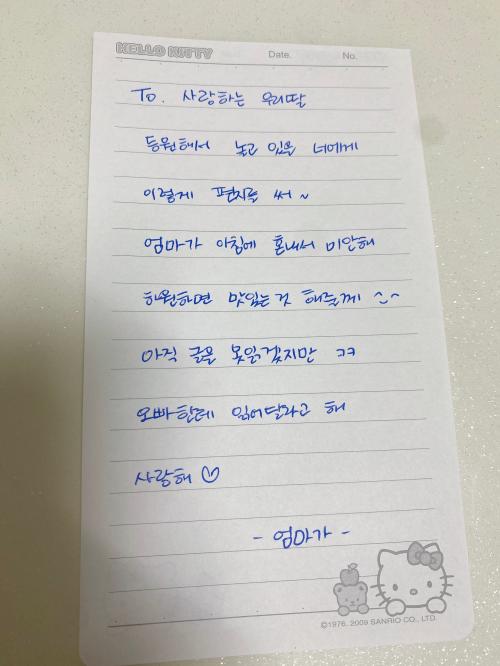 HELLO KITTY Date. No.
To. 사랑하는 우리딸
등원해서 놀고 있을 너에게
이렇게 편지를 써~
엄마가 아침에 혼내서 미안해
하원하면 맛있는것 해줄께 ^~^
아직 글을 못읽겠지만 ㅋㅋ
오빠한테 읽어달라고 해
사랑해 ♡
- 엄마가 -
©1976, 2009 SANRIO CO., LTD.